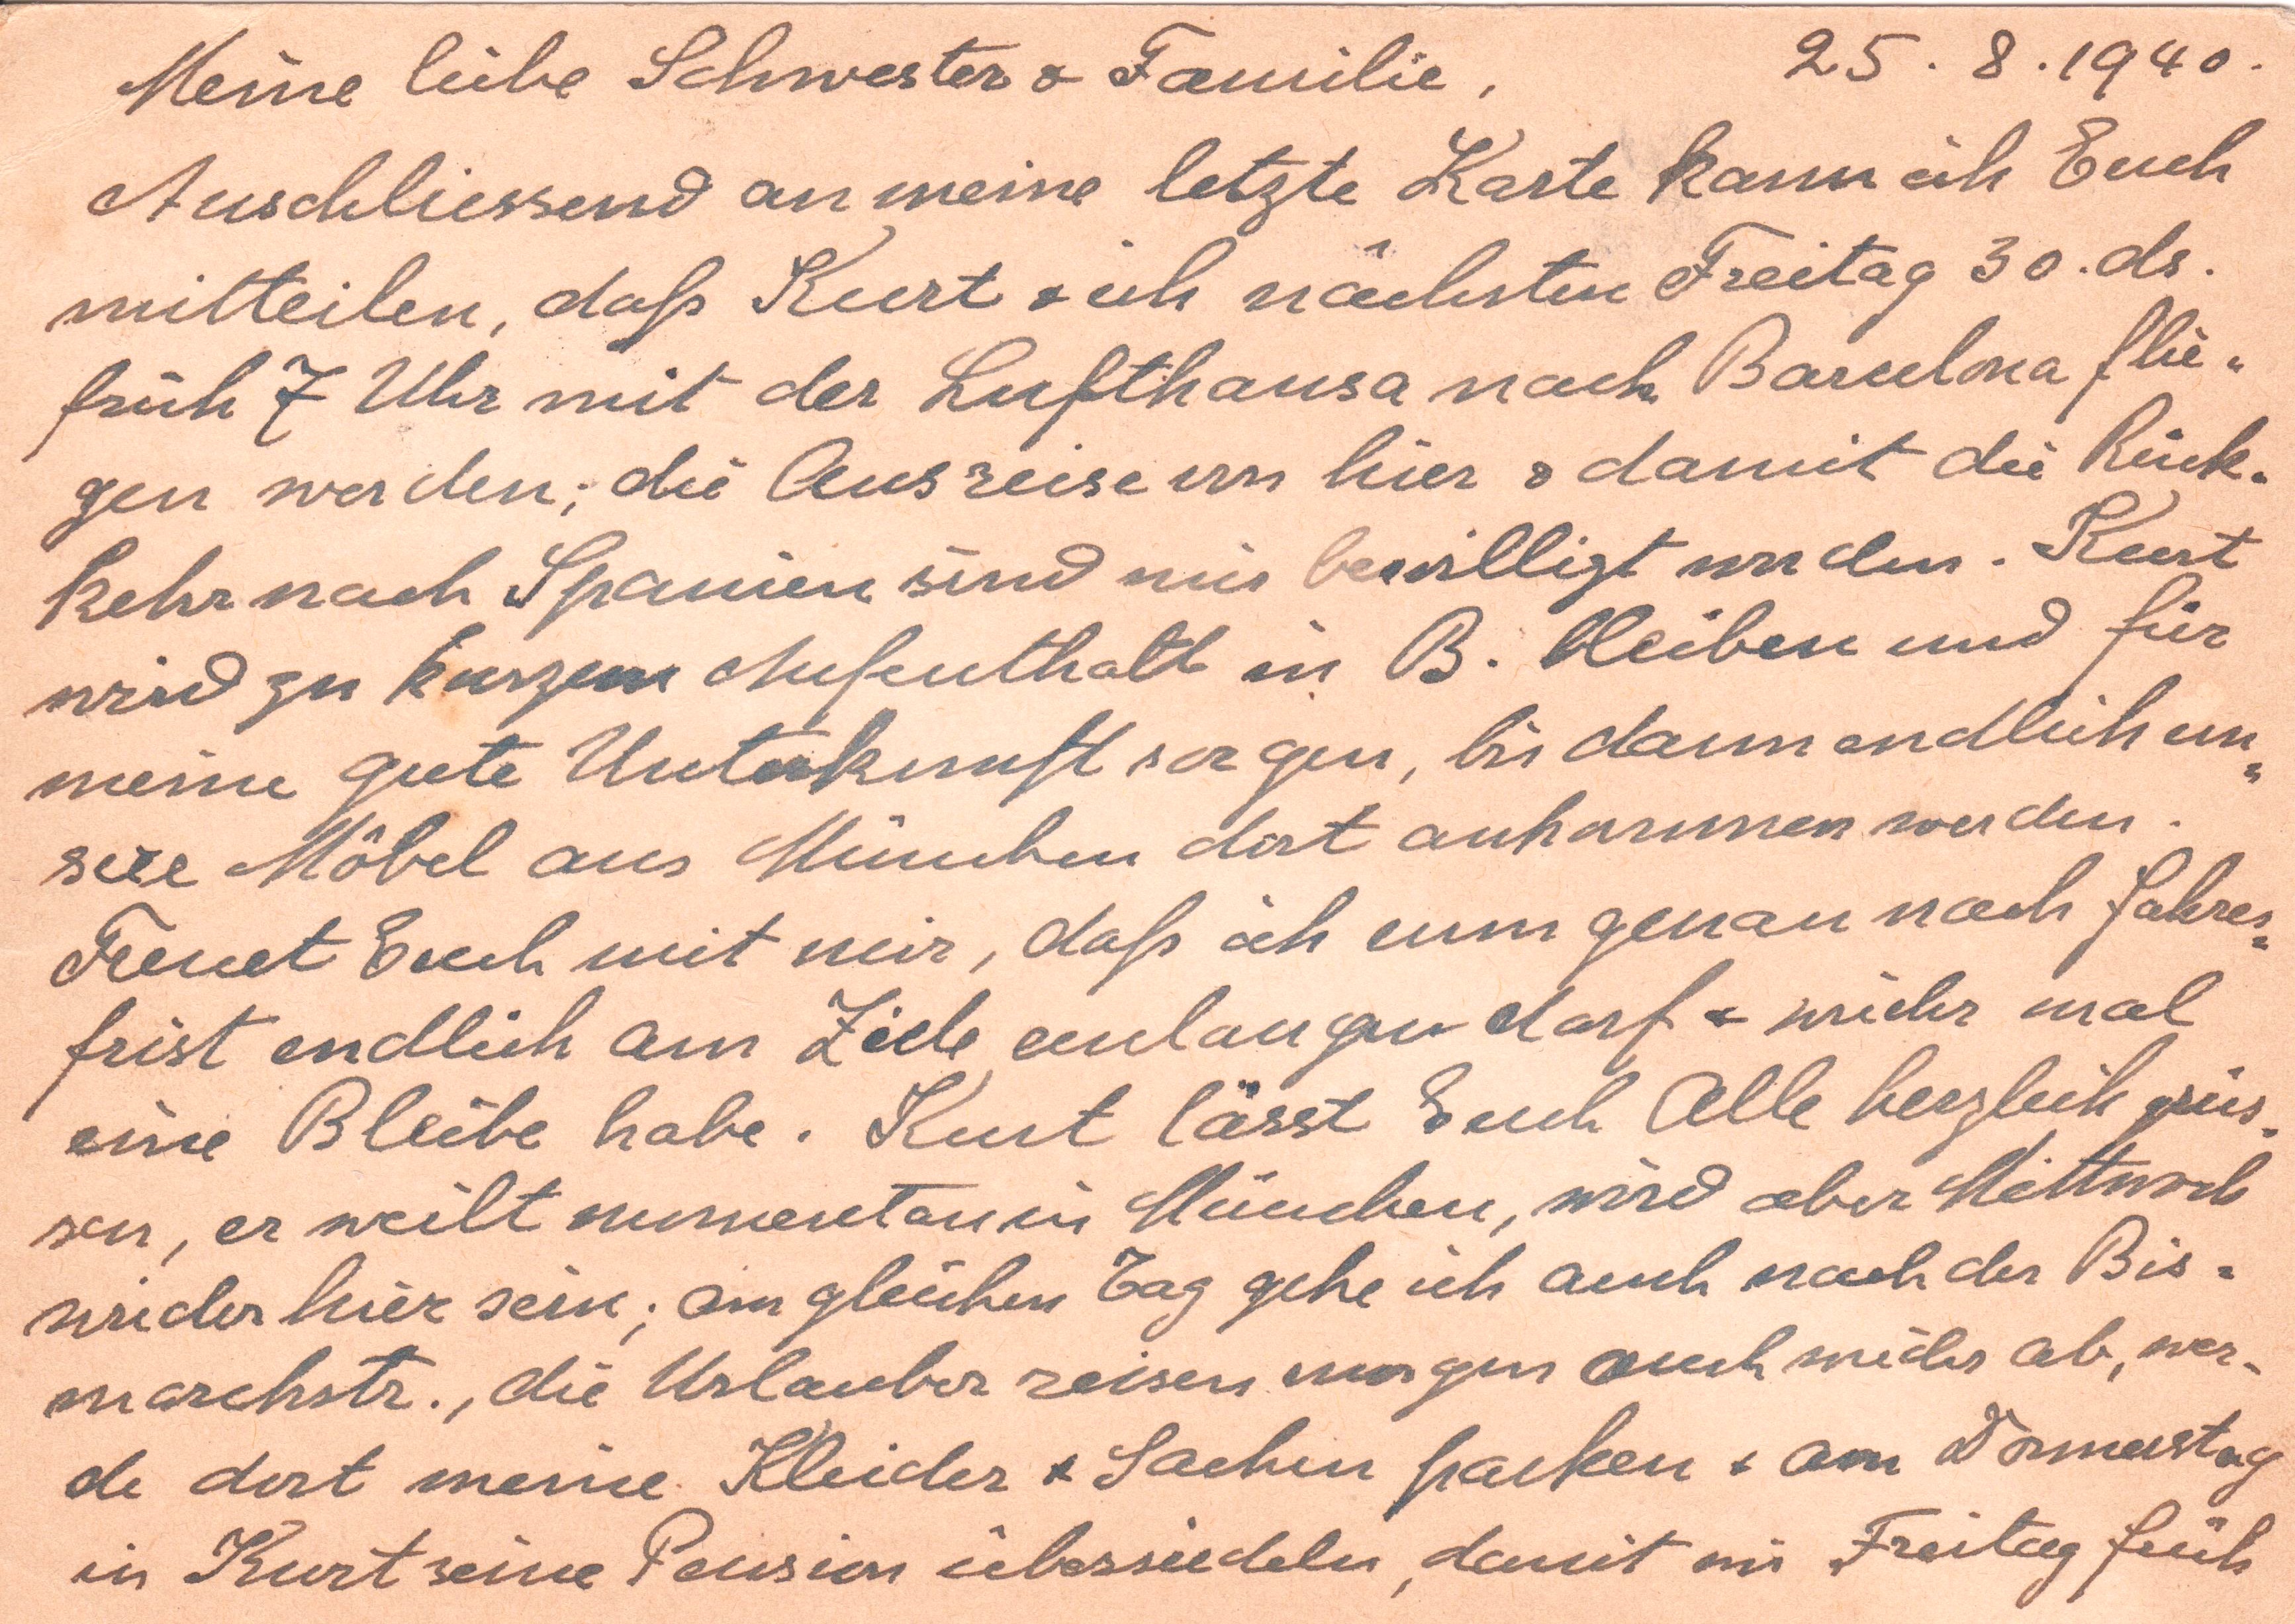 Meine liebe Schwester & Familie, 25.8.1940.
Anschliessend an meine letzte Karte kann ich Euch
mitteilen, daß Kurt & ich nächsten Freitag 30. ds.
früh 7 Uhr mit der Lufthansa nach Barcelona flie-
gen werden; die Ausreise von hier & damit die Rück-
kehr nach Spanien sind mir bewilligt worden. Kurt
wird zu kurzem Aufenthalt in B. bleiben und für
meine gute Unterkunft sorgen, bis dann endlich un-
sere Möbel aus München dort ankommen werden.
Freuet Euch mit mir, daß ich nun genau nach Jahres-
frist endlich am Ziele anlangen darf & wieder mal
eine Bleibe habe. Kurt lässt Euch Alle herzlich grüs-
sen, er weilt momentan in München, wird aber Mittwoch
wieder hier sein; am gleichen Tag gehe ich auch nach der Bis-
marckstr., die Urlauber reisen morgen auch wieder ab, wer-
de dort meine Kleider & Sachen packen & am Donnerstag
in Kurt seine Pension übersiedeln, damit wir Freitag früh